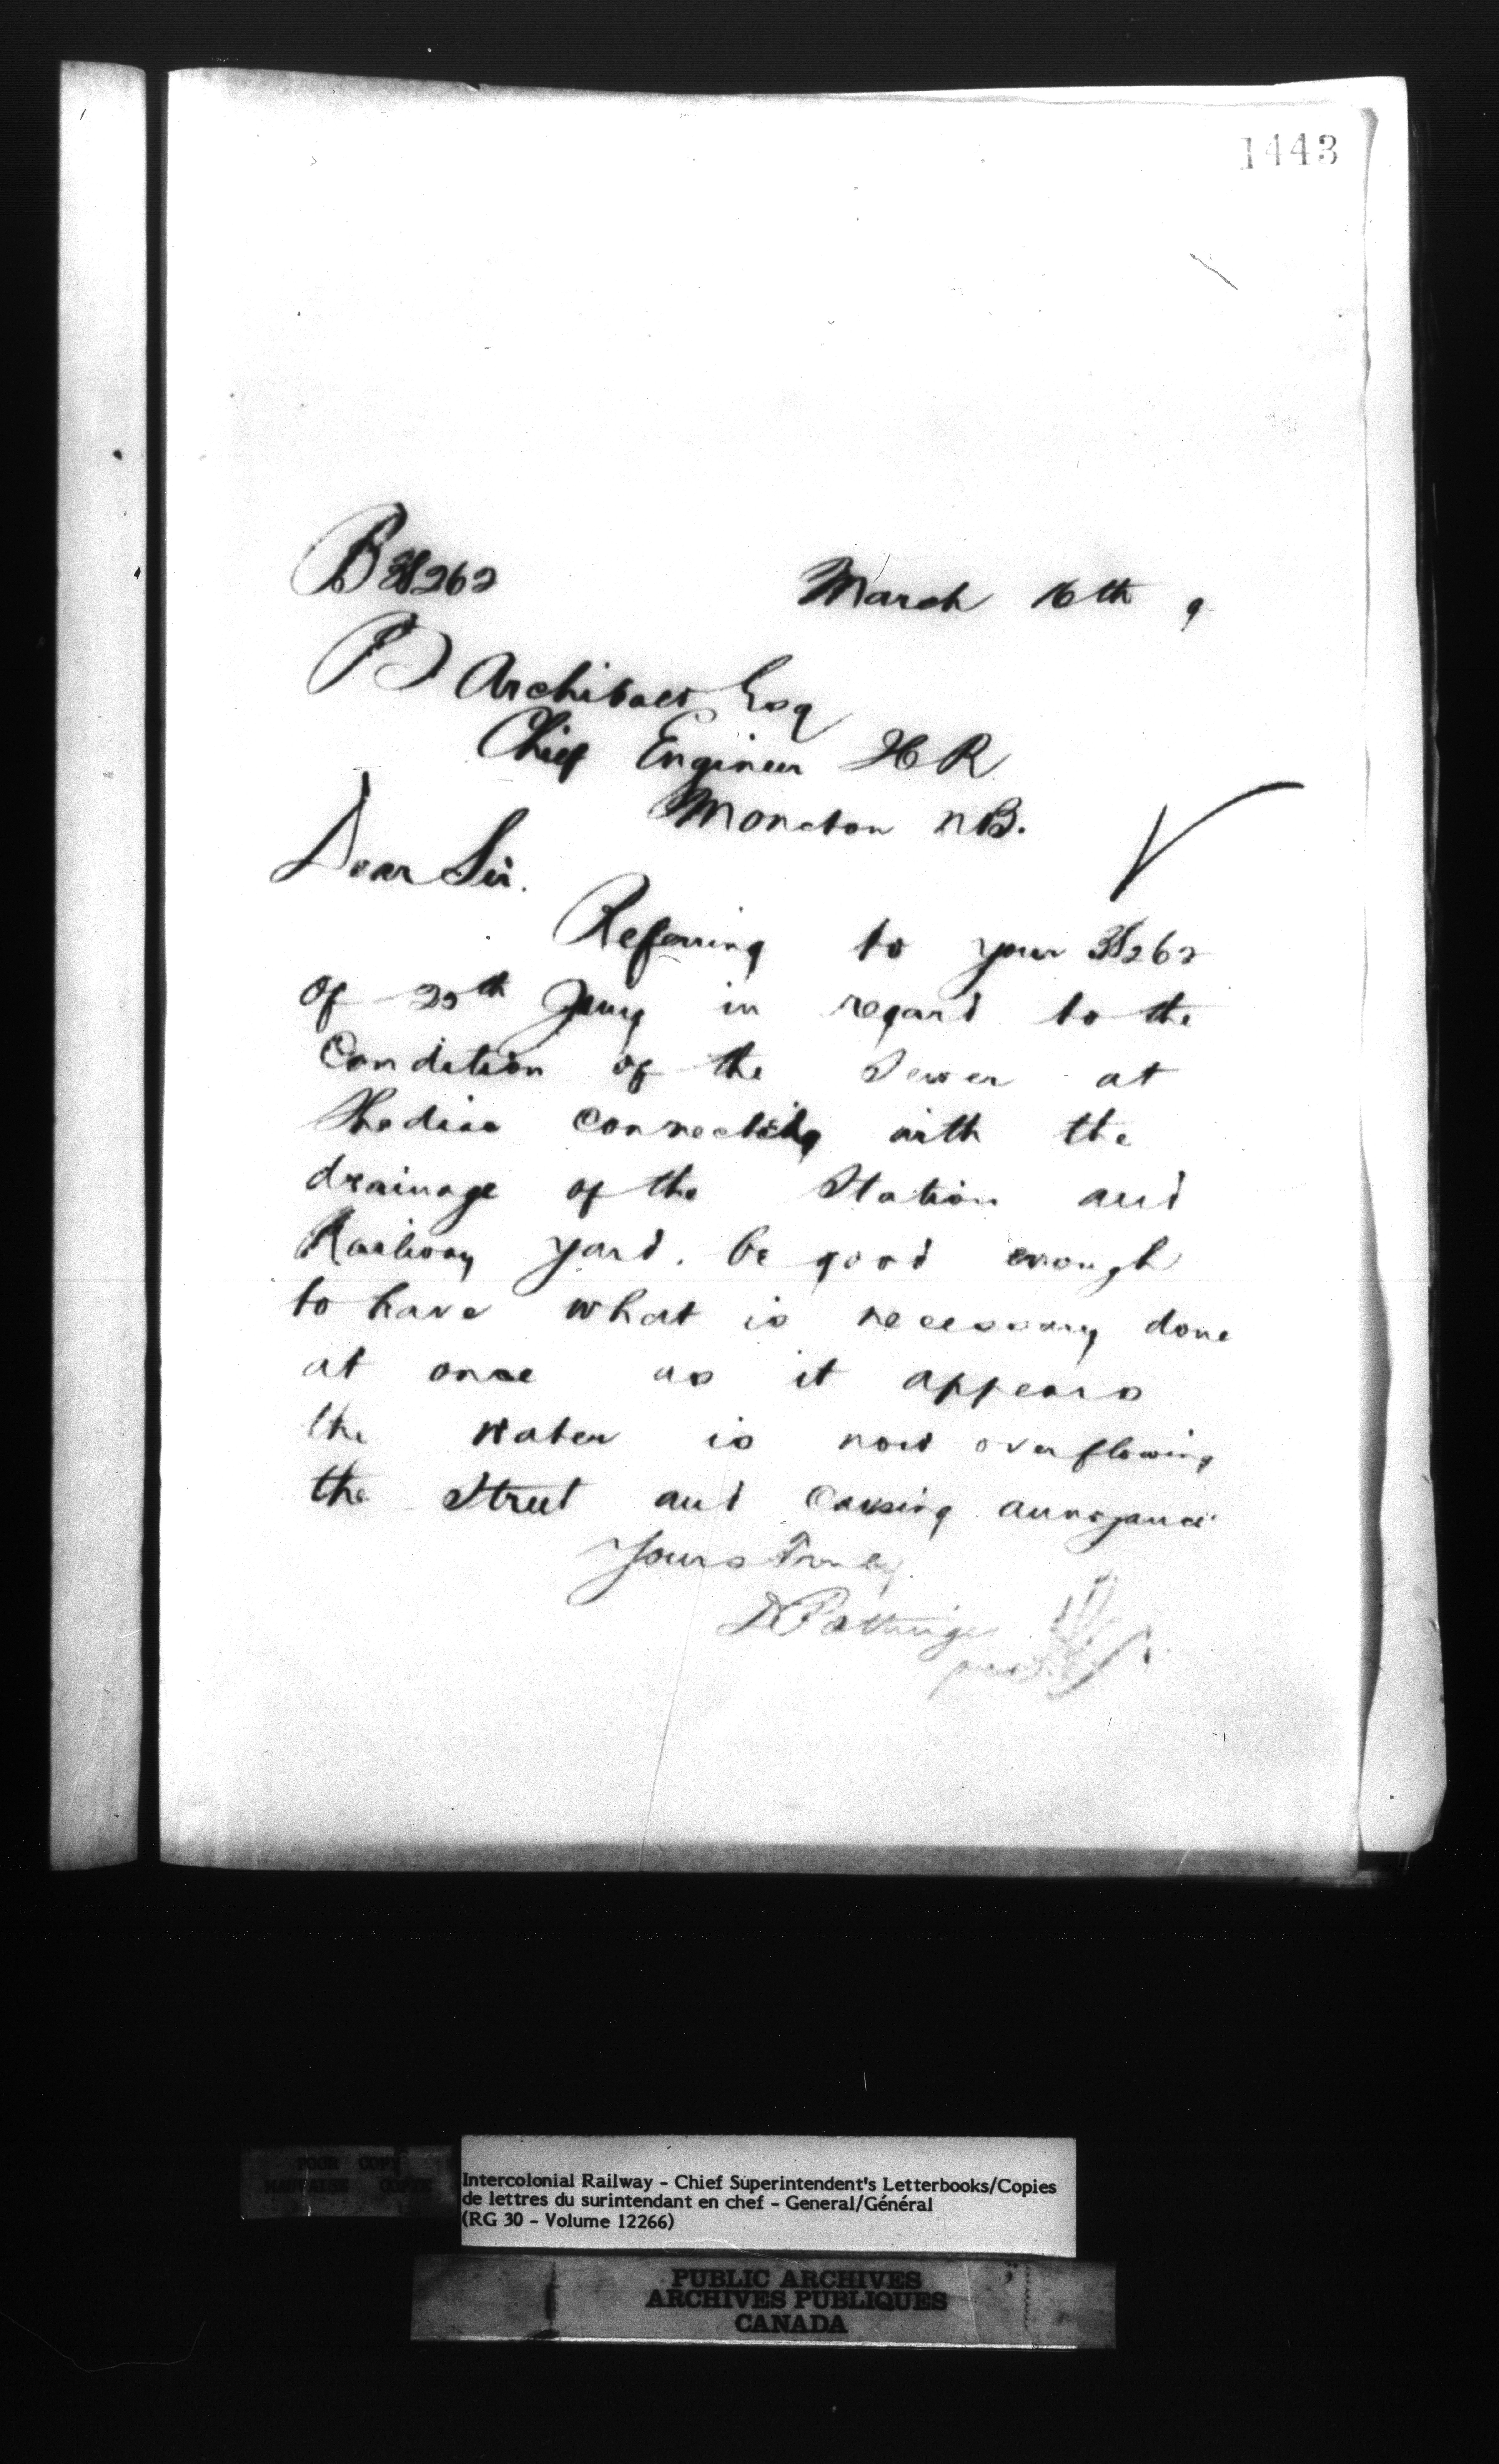 1443
B 38262
March 16th 9
P Archibald Esq
Chief Engineer ICR
Moncton NB.
Dear Sir.
Referring to your 38262
of 25th Jany in regard to the
Condition of the Sewer at
Shediac connecting with the
drainage of the Station and
Railway yard. be good enough
to have what is necessary done
at once as it appears
the water is now overflowing
the Street and Causing annoyance
Yours Truly
D Pottinger
POOR COPY
MAUVAISE COPIE
Intercolonial Railway - Chief Superintendent's Letterbooks/Copies
de lettres du surintendant en chef - General/Général
(RG 30 - Volume 12266)
PUBLIC ARCHIVES
ARCHIVES PUBLIQUES
CANADA